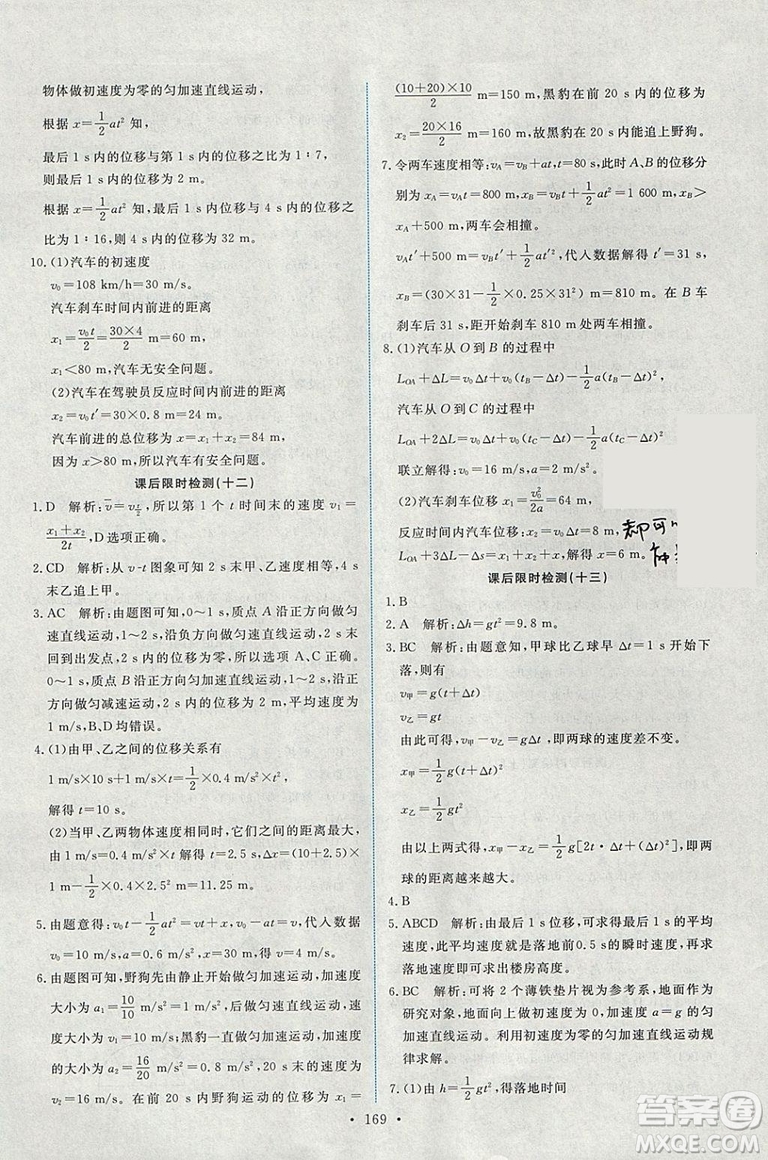 物体做初速度为零的匀加速直线运动,
根据 x=1/2at² 知,
最后 1 s 内的位移与第 1 s 内的位移之比为 1∶7,
则最后 1 s 内的位移为 2 m。
根据 x=1/2at² 知,最后 1 s 内的位移与 4 s 内的位移之
比为 1∶16,则 4 s 内的位移为 32 m。
10. (1)汽车的初速度
v₀=108 km/h=30 m/s,
汽车刹车时间内前进的距离
x₁=v₀t/2=30×4/2 m=60 m,
x₁<80 m,汽车无安全问题。
(2)汽车在驾驶员反应时间内前进的距离
x₂=v₀t′=30×0.8 m=24 m。
汽车前进的总位移为 x=x₁+x₂=84 m,
因为 x>80 m,所以汽车有安全问题。
课后限时检测(十二)
1. D 解析:v̄=v_{t/2},所以第 1 个 t 时间末的速度 v₁=
(x₁+x₂)/2t,D 选项正确。
2. CD 解析:从 v-t 图象可知 2 s 甲、乙速度相等,4 s
末乙追上甲。
3. AC 解析:由题图可知,0~1 s,质点 A 沿正方向做匀
速直线运动,1~2 s,沿负方向做匀速直线运动,2 s 末
回到出发点,2 s 内的位移为零,所以选项 A、C 正确。
0~1 s,质点 B 沿正方向匀加速直线运动,1~2 s,沿
正方向做匀减速直线运动,2 s 内的平均速度为
1 m/s,B、D 均错误。
4. (1)由甲、乙之间的位移关系有
1 m/s×10 s+1 m/s×t=1/2×0.4 m/s²×t²,
解得 t=10 s。
(2)当甲、乙两物体速度相同时,它们之间的距离最大,
由 1 m/s=0.4 m/s²t 解得 t=2.5 s,Δx=(10+2.5)×
1 m−1/2×0.4×2.5² m=11.25 m。
5. 由题意得:v₀t−1/2at²+1/2at²=vt+v₀t,代入数据
6. 由题图可知,野狗先由静止开始做匀加速运动,加速度
大小为 a₁=10/10 m/s²,后做匀速运动,匀速运动的速度
大小为 v₁=10 m/s;黑豹一直做匀加速运动,加速度
大小为 a₂=16/20 m/s²=0.8 m/s²,20 s 末的速度大小
为 v₂=16 m/s。在前 20 s 内野狗运动的位移为 x₁=
(10+20)×10/2 m=150 m,黑豹在前 20 s 内的位移为
x₂=20×16/2 m=160 m,故黑豹在 20 s 内能追上野狗。
7. 令两车速度相等:v_A=v_B+at,t=80 s,此时 A、B 的位移分
别为 x_A=v_At=1/2at²=1 600 m,x_B>
x_A+500 m,两车会相撞。
v_At′+500 m=v_Bt′+1/2at′²,代入数据解得 t′=31 s,
x_B=(30×31−1/2×0.25×31²) m=810 m。在 B 车
刹车后 31 s,距开始刹车 810 m 处两车相撞。
8. (1)汽车从 O 到 B 的过程中
L_OA+ΔL=v₀Δt+v₀(t_B−Δt)−1/2a(t_B−Δt)²,
汽车从 O 到 C 的过程中
L_OA+2ΔL=v₀Δt+v₀(t_C−Δt)−1/2a(t_C−Δt)²
联立解得:a=
(2)汽车刹车位移 x₂=v₀²/2a=64 m,
反应时间内汽车位移:x₁=v₀Δt=8 m,
L_OA+3ΔL−x₁−x₂=x,解得:x=6 m。
却可
课后限时检测(十三)
1. B
2. A 解析:Δh=gt²=9.8 m。
3. BC 解析:由题意知,甲球比乙球早 Δt=1 s 开始下
落,则有
v甲=g(t+Δt)
v乙=gt
由此可得,v甲−v乙=gΔt,即两球的速度差不变。
x甲=1/2g(t+Δt)²
x乙=1/2gt²
由以上两式得,x甲−x乙=1/2g[2t·Δt+(Δt)²],即两
球的距离越来越大。
4. B
5. ABCD 解析:由最后 1 s 位移,可求得最后 1 s 的平均
速度,此平均速度就是落地前 0.5 s 的瞬时速度,再求
落地时间,进而求出楼房高度。
6. BC 解析:可将 2 个薄铁垫片为参考系,地面作为
研究对象,地面向上做初速度为零,加速度 a=g 的匀
加速直线运动。利用初速度为零的匀加速直线运动规
律求解。
7. (1)由 h=1/2gt²,得落地时间
169
答案圈
MXQE.COM